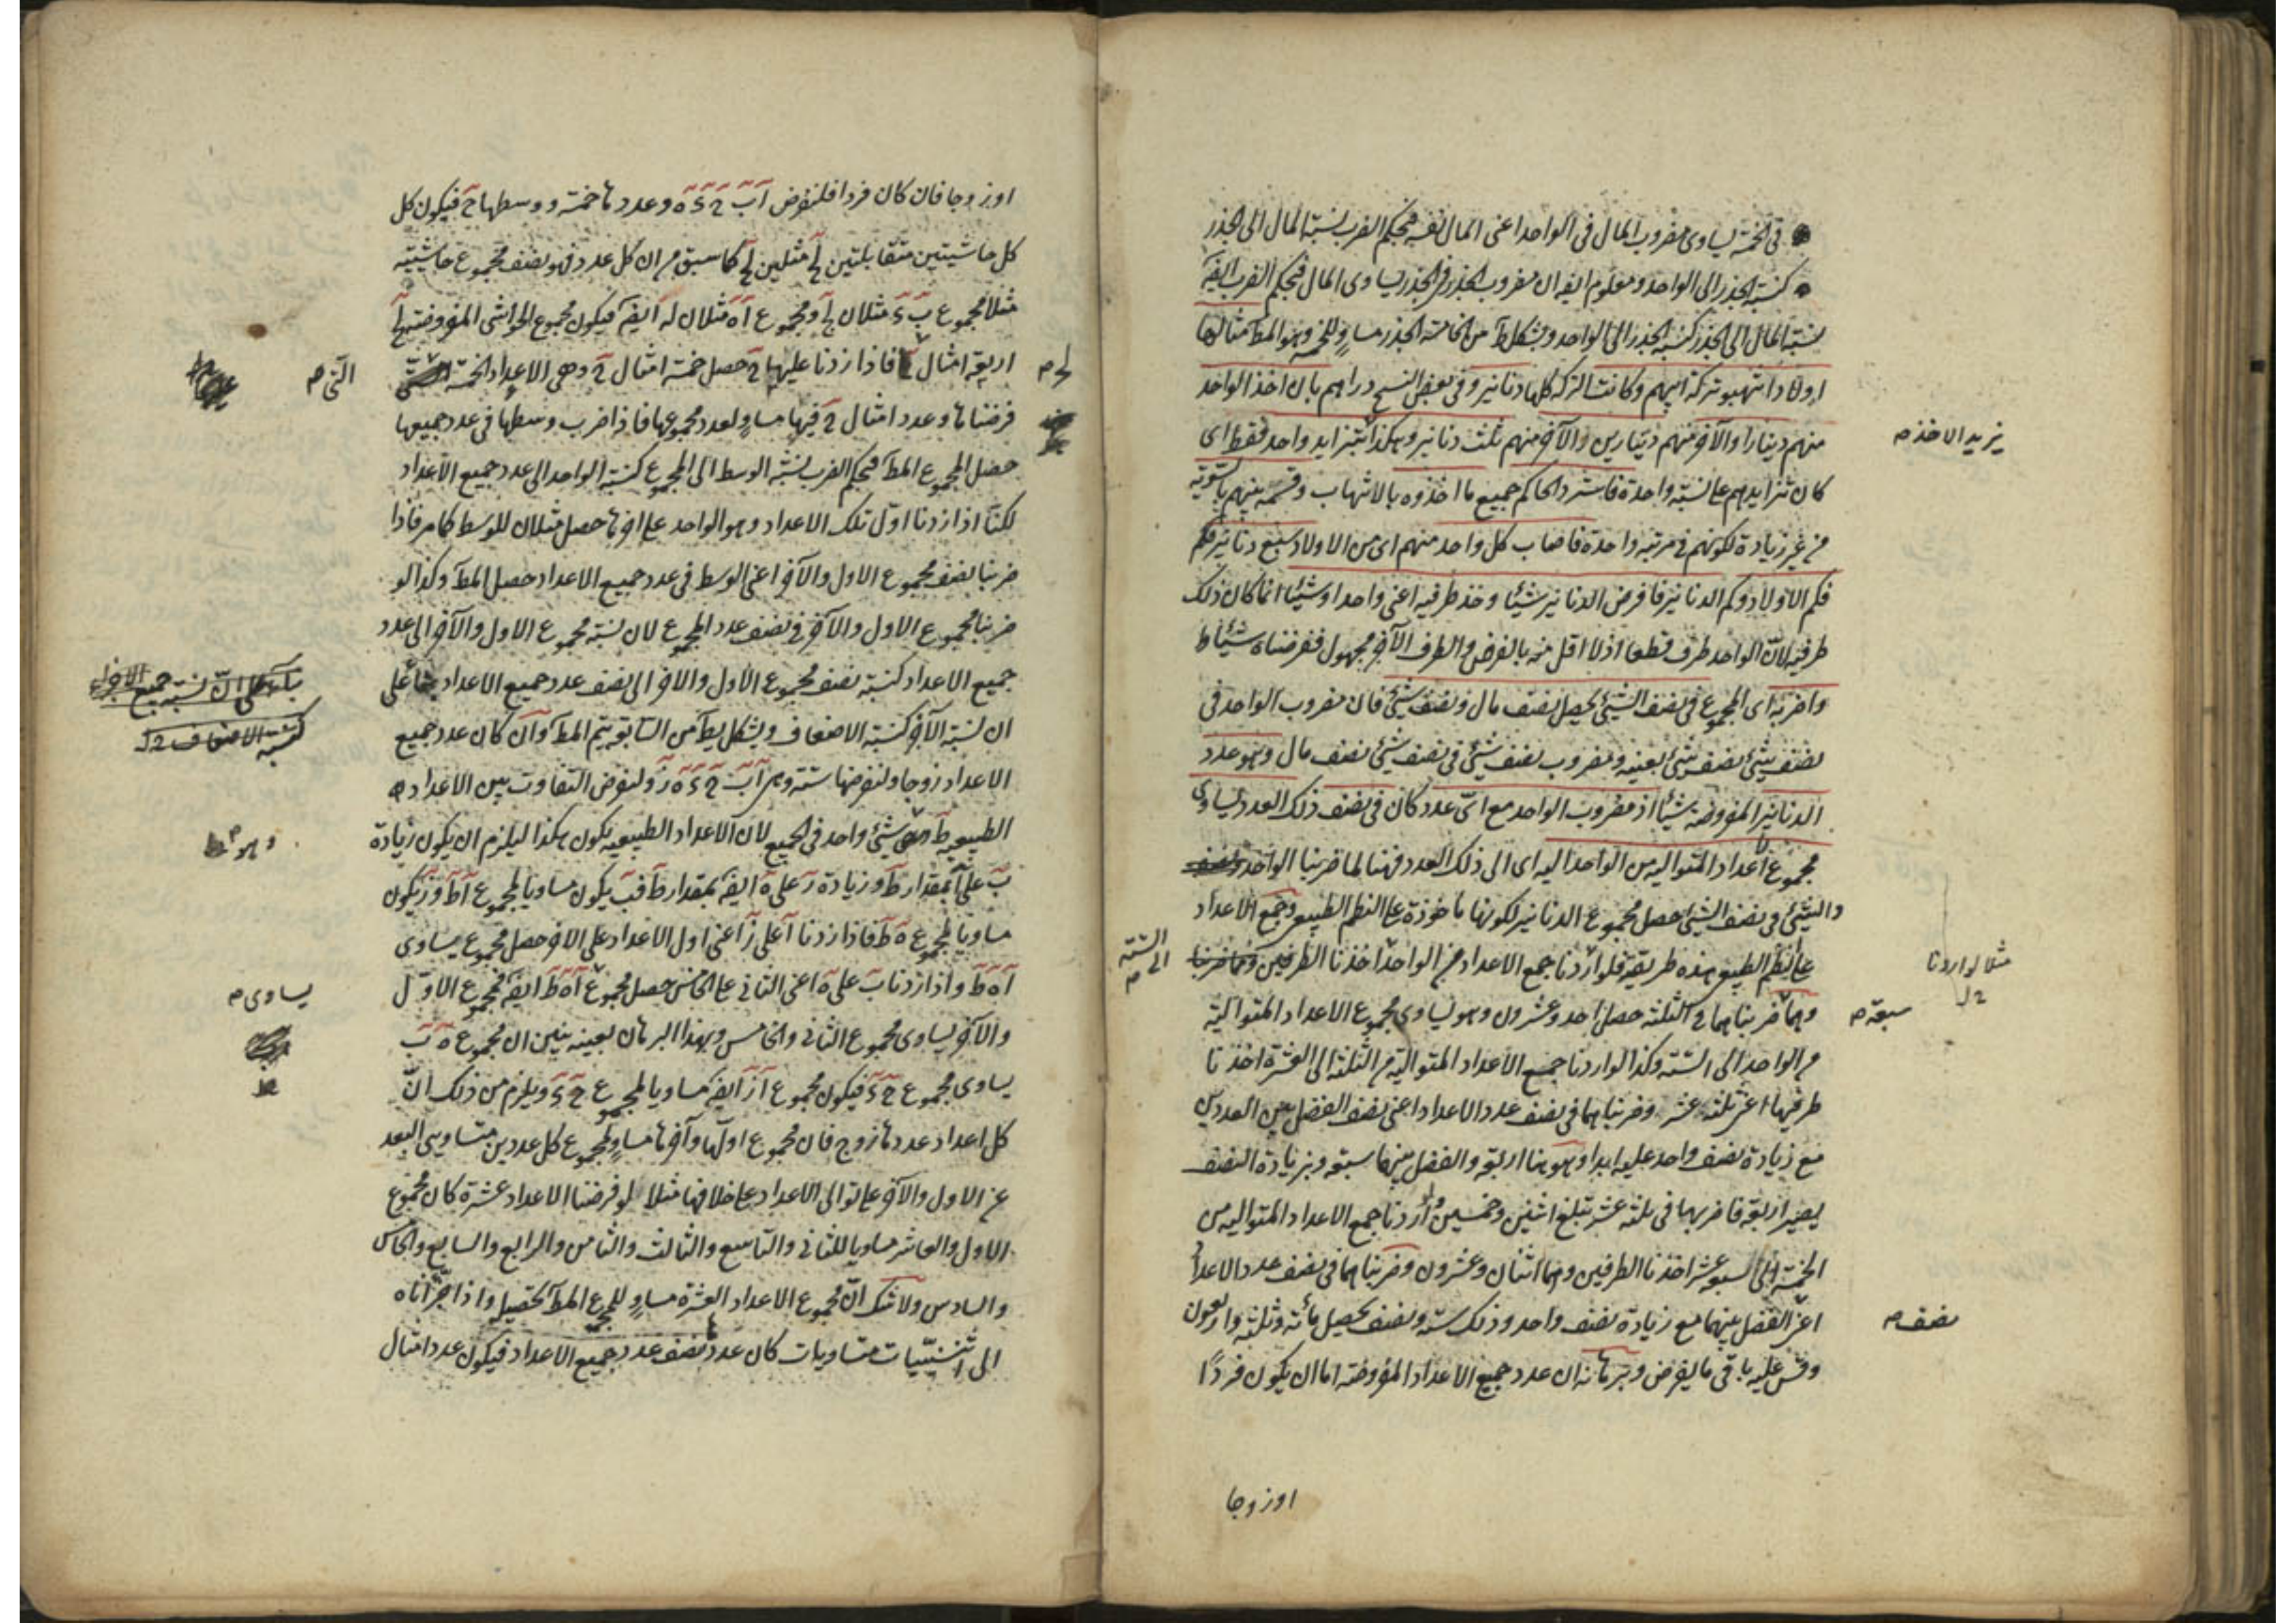 فى الخمسة يساوى مضروب المال فى الواحد اعنى المال نفسه فبحكم الضرب نسبة المال الى الجذر
كنسبة الجذر الى الواحد ومعلوم ايضا ان مضروب الجذر فى الجذر يساوى المال فبحكم الضرب ايضا
نسبة المال الى الجذر كنسبة الجذر الى الواحد وبشكل ط من الخامسة الجذر مساو للخمسة وهو المط مثالها
اولاد انتهبوا تركة ابيهم وكانت التركة كلها دنانير وفى بعض النسخ دراهم بان اخذ الواحد
منهم دينارا والآخر منهم دينارين والآخر منهم ثلث دنانير وهكذا بتزايد واحد فقط اى
كان تزايدهم على نسبة واحدة فاسترد الحاكم جميع ما اخذوه بالانتهاب وقسمه بينهم بالسوية
من غير زيادة لكونهم فى مرتبة واحدة فاصاب كل واحد منهم اى من الاولاد سبع دنانير فكم
فكم الاولاد وكم الدنانير فافرض الدنانير شيئا وخذ طرفيه اعنى واحدا وشيئا انما كان ذلك
طرفيه لان الواحد طرف قطعا اذ لا اقل منه بالفرض والطرف الآخر مجهول ففرضناه شيئا ط
واضربه اى المجموع فى نصف الشيئ يحصل نصف مال ونصف شيئ فان مضروب الواحد فى
نصف شيئ نصف شيئ بعينه ومضروب نصف شيئ فى نصف شيئ نصف مال وهو عدد
الدنانير المفروضة شيئا اذ مضروب الواحد مع اىّ عدد كان فى نصف ذلك العدد يساوى
مجموع الاعداد المتوالية من الواحد اليه اى الى ذلك العدد فهنا لما ضربنا الواحد
والشيئ فى نصف الشيئ حصل مجموع الدنانير لكونها ماخوذة على النظم الطبيعى وجمع الاعداد
على النظم الطبيعى هذه طريقه فلو اردنا جمع الاعداد من الواحد اخذنا الطرفين
وهما ضربناهما فى الثلثة حصل احد وعشرون وهو يساوى مجموع الاعداد المتوالية
من الواحد الى الستة وكذا لو اردنا جميع الاعداد المتوالية من الثلثة الى العشرة اخذنا
طرفيها اعنى ثلثة عشر وضربناهما فى نصف عدد الاعداد اعنى نصف الفضل بين العددين
مع زيادة نصف واحد عليه ابدا وهو هنا اربعة والفضل بينهما سبعة وبزيادة النصف
يصير اربعة فاضربها فى ثلثة عشر تبلغ اثنين وخمسين ولو اردنا جمع الاعداد المتوالية من
الخمسة الى سبعة عشر اخذنا الطرفين وهما اثنان وعشرون وضربناهما فى نصف عدد الاعداد
اعنى الفضل بينهما مع زيادة نصف واحد وذلك ستة ونصف يحصل مائة وثلثة واربعون
وقس عليه باقى ما يفرض وبرهانه ان عدد جميع الاعداد المفروضة اما ان يكون فردًا
يزيد الاخذ م
الستة
الى م
مثلا لو اردنا
سبعة م
نصف م
او زوجا
او زوجا فان كان فردا فلنفرض آ ب ح د ه وعددها خمسة ووسطها ح فيكون كل
كل حاشيتين متقابلتين لح مثلين لح كما سبق من ان كل عدد فهو نصف مجموع حاشيتيه
مثلا مجموع ب د مثلان لح ومجموع آ ه مثلان له ايضا فيكون مجموع الحواشى المفروضة لح
اربعة امثال ح فاذا زدنا عليها ح حصل خمسة امثال ح وهى الاعداد الخمسة
فرضناها وعدد امثال ح فيها مساو لعدد مجموعها فاذا ضرب وسطها فى عدد جميعها
حصل المجموع المط فبحكم الضرب نسبة الوسط الى المجموع كنسبة الواحد الى عدد جميع الاعداد
لكنا اذا زدنا اول تلك الاعداد وهو الواحد على اخرها حصل مثلان للوسط كما مر فاذا
ضربنا نصف مجموع الاول والآخر اعنى الوسط فى عدد جميع الاعداد حصل المط وكذا لو
ضربنا مجموع الاول والآخر فى نصف عدد المجموع لان نسبة مجموع الاول والآخر الى عدد
جميع الاعداد كنسبة نصف مجموع الاول والاخر الى نصف عدد جميع الاعداد بناء على
ان نسبة الآخر كنسبة الاضعاف وبشكل يط من السابعة يتم المط وان كان عدد جميع
الاعداد زوجا ولنفرضها ستة وهى آ ب ح د ه ز ولنفرض التفاوت بين الاعداد
الطبيعية ط شيئ واحد فى الجميع لان الاعداد الطبيعية يكون هكذا ليلزم ان يكون زيادة
ب على آ بمقدار ط وزيادة ز على ه ايضا بمقدار ط فب يكون مساويا لمجموع آ ط وز يكون
مساويا لمجموع ه ط فاذا زدنا آ على ز اعنى اول الاعداد على الاخر حصل مجموع يساوى
آ ه ط واذا زدنا ب على ه اعنى الثانى على الخامس حصل مجموع آ ه ط ايضا فمجموع الاول
والآخر يساوى مجموع الثانى والخامس وبهذا البرهان بعينه يتبين ان مجموع ه ب
يساوى مجموع ح د فيكون مجموع آ ز ايضا مساويا لمجموع ح د ويلزم من ذلك انّ
كل اعداد عددها زوج فان مجموع اولها وآخرها مساو لمجموع كل عددين متساويى البعد
عن الاول والآخر على توالى الاعداد على خلافها مثلا لو فرضنا الاعداد عشرة كان مجموع
الاول والعاشر مساويا للثانى والتاسع والثالث والثامن والرابع والسابع والخامس
والسادس ولا شك انّ مجموع الاعداد العشرة مساو للمجموع المط تحصيله واذا جزأناه
الى اثنينيات متساويات كان عددها نصف عدد جميع الاعداد فيكون عدد امثال
لح م
التى م
كنسبة الاضعاف
وهو م
يساوى م